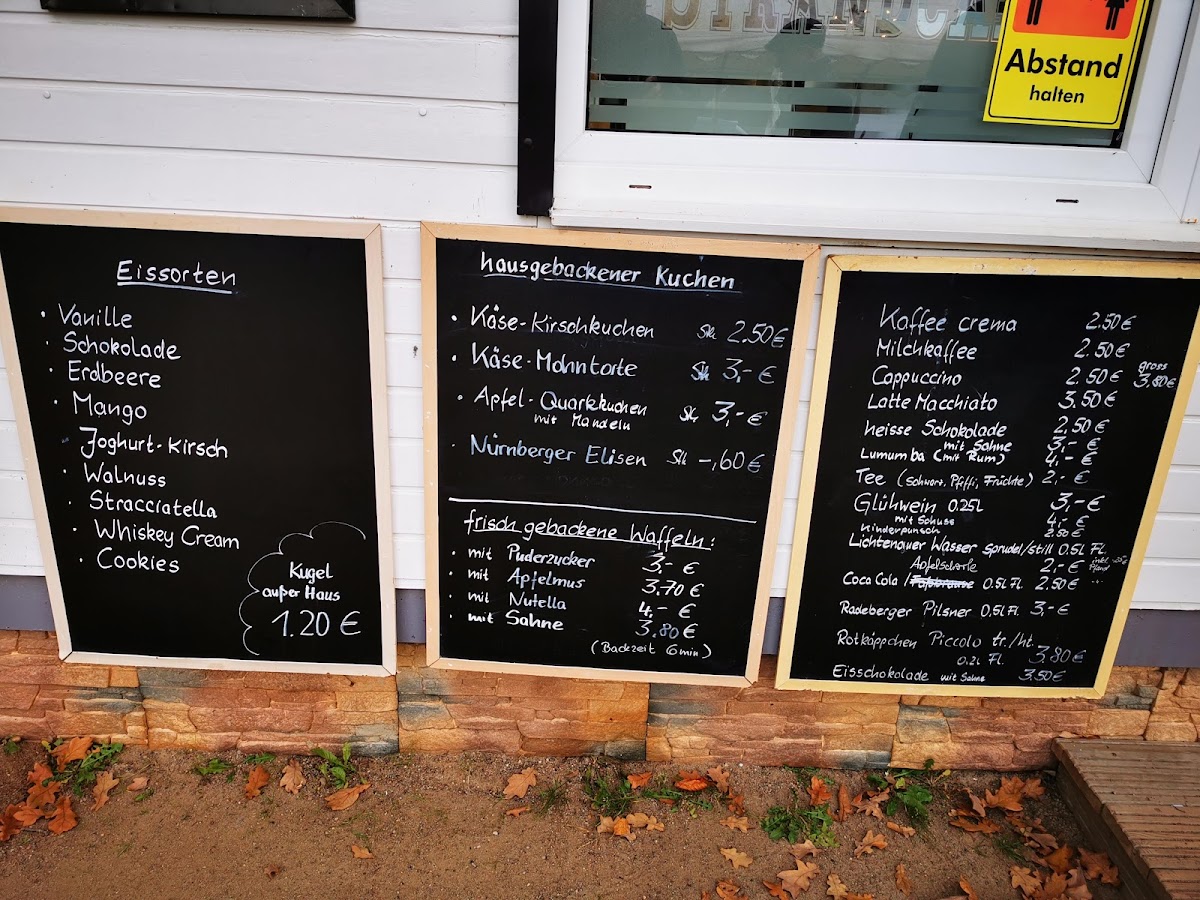 STRANDCA
Abstand
halten
Eissorten
• Vanille
• Schokolade
• Erdbeere
• Mango
• Joghurt-Kirsch
• Walnuss
• Stracciatella
• Whiskey Cream
• Cookies
Kugel
außer Haus
1.20 €
hausgebackener Kuchen
• Käse-Kirschkuchen Stk 2.50 €
• Käse-Mohntorte Stk 3,- €
• Apfel-Quarkkuchen Stk 3,- €
mit Mandeln
• Nürnberger Elisen Stk -,60 €
frisch gebackene Waffeln:
• mit Puderzucker 3,- €
• mit Apfelmus 3.70 €
• mit Nutella 4,- €
• mit Sahne 3.80 €
(Backzeit 6 min)
Kaffee crema 2.50 €
Milchkaffee 2.50 €
Cappuccino 2.50 € gross 3.80 €
Latte Macchiato 3.50 €
heisse Schokolade 2,50 €
mit Sahne 3,- €
Lumumba (mit Rum) 4,- €
Tee (Schwarz, Pfeffi, Früchte) 2,- €
Glühwein 0.25L 3,- €
mit Schuss 4,- €
Kinderpunsch 2.50 €
Lichtenauer Wasser Sprudel/still 0.5L Fl.
Apfelschorle 2,- € inkl. Pfand
Coca Cola / Faßbrause 0.5L Fl. 2.50 €
Radeberger Pilsner 0,5L Fl. 3,- €
Rotkäppchen Piccolo tr./ht.
0.2L Fl. 3.80 €
Eisschokolade mit Sahne 3.50 €